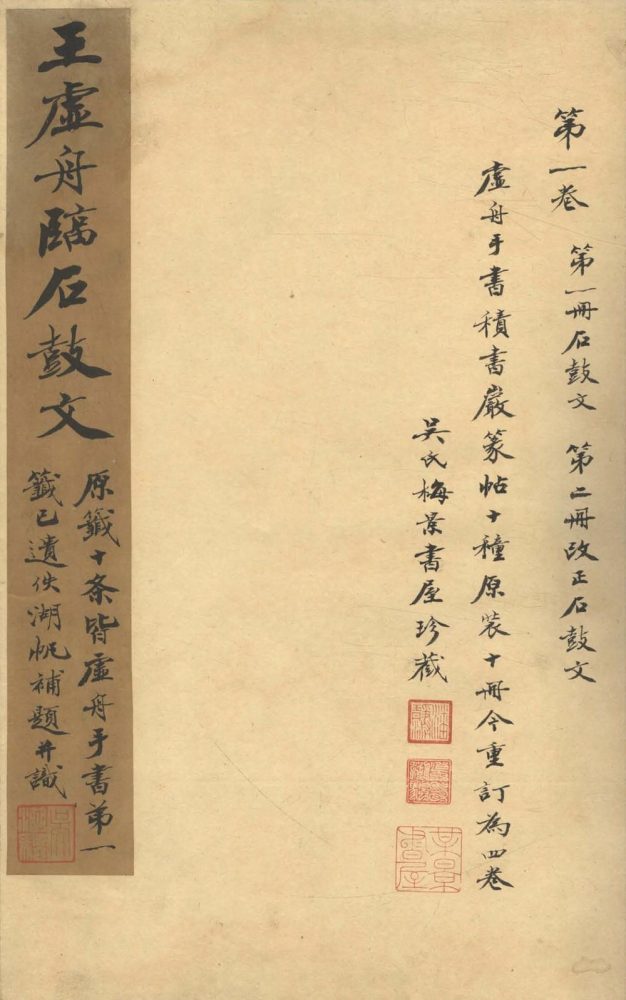 第一卷 第一冊石鼓文 第二冊改正石鼓文
虛舟手書積書巖篆帖十種原裝十冊今重訂為四卷
吳氏梅景書屋珍藏
王虛舟臨石鼓文
原籤十条皆虛舟手書第一
籤已遺佚湖帆補題并識